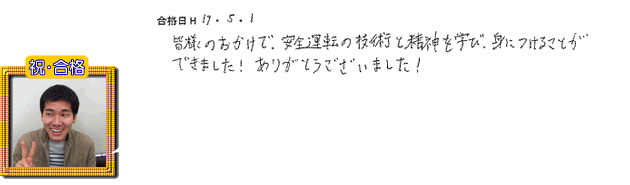 合格日 H 17.5.1
皆様のおかげで、安全運転の技術と精神を学び、身につけることが
できました！ありがとうございました！
祝・合格